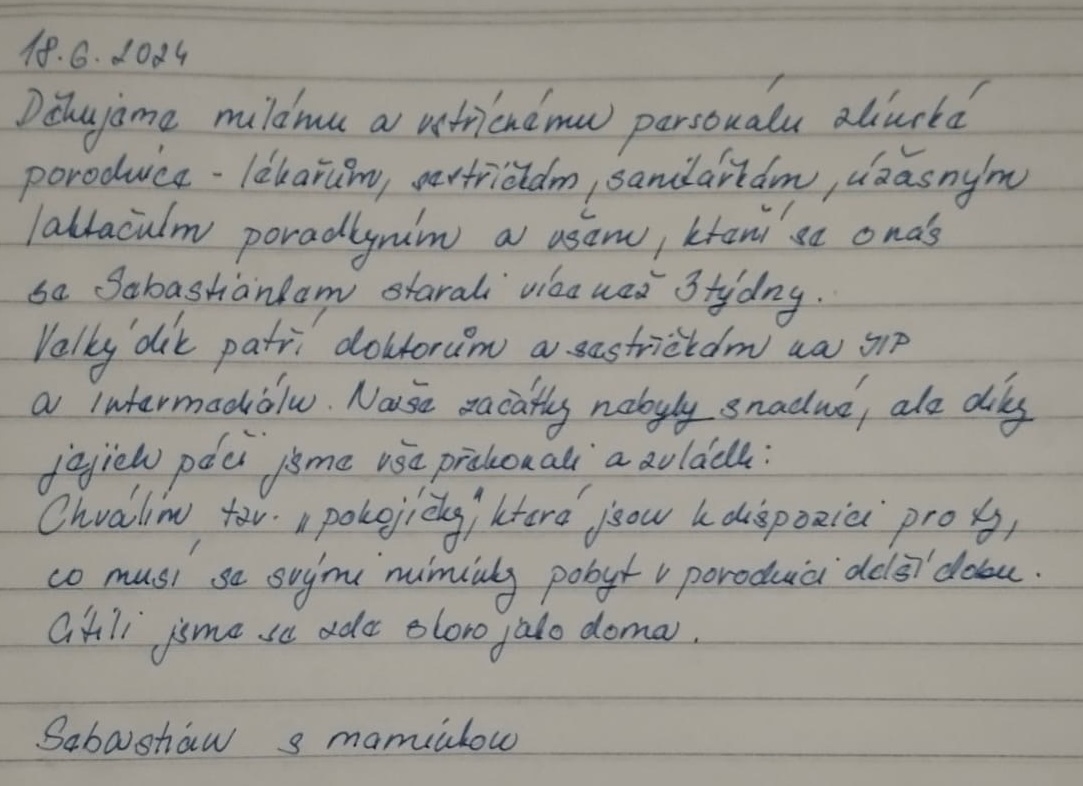 18.6.2024
Děkujeme milému a vstřícnému personálu zlínské
porodnice - lékařům, sestřičkám, sanitářkám, úžasným
laktačním poradkyním a všem, kteří se o nás
se Sebastiánkem starali více než 3 týdny.
Velký dík patří doktorům a sestřičkám na JIP
a intermediálu. Naše začátky nebyly snadné, ale díky
jejich péči jsme vše překonali a zvládli:
Chválím tzv. "pokojíčky", které jsou k dispozici pro ty,
co musí se svými miminky pobýt v porodnici delší dobu.
Cítili jsme se zde skoro jako doma.
Sebastián s maminkou